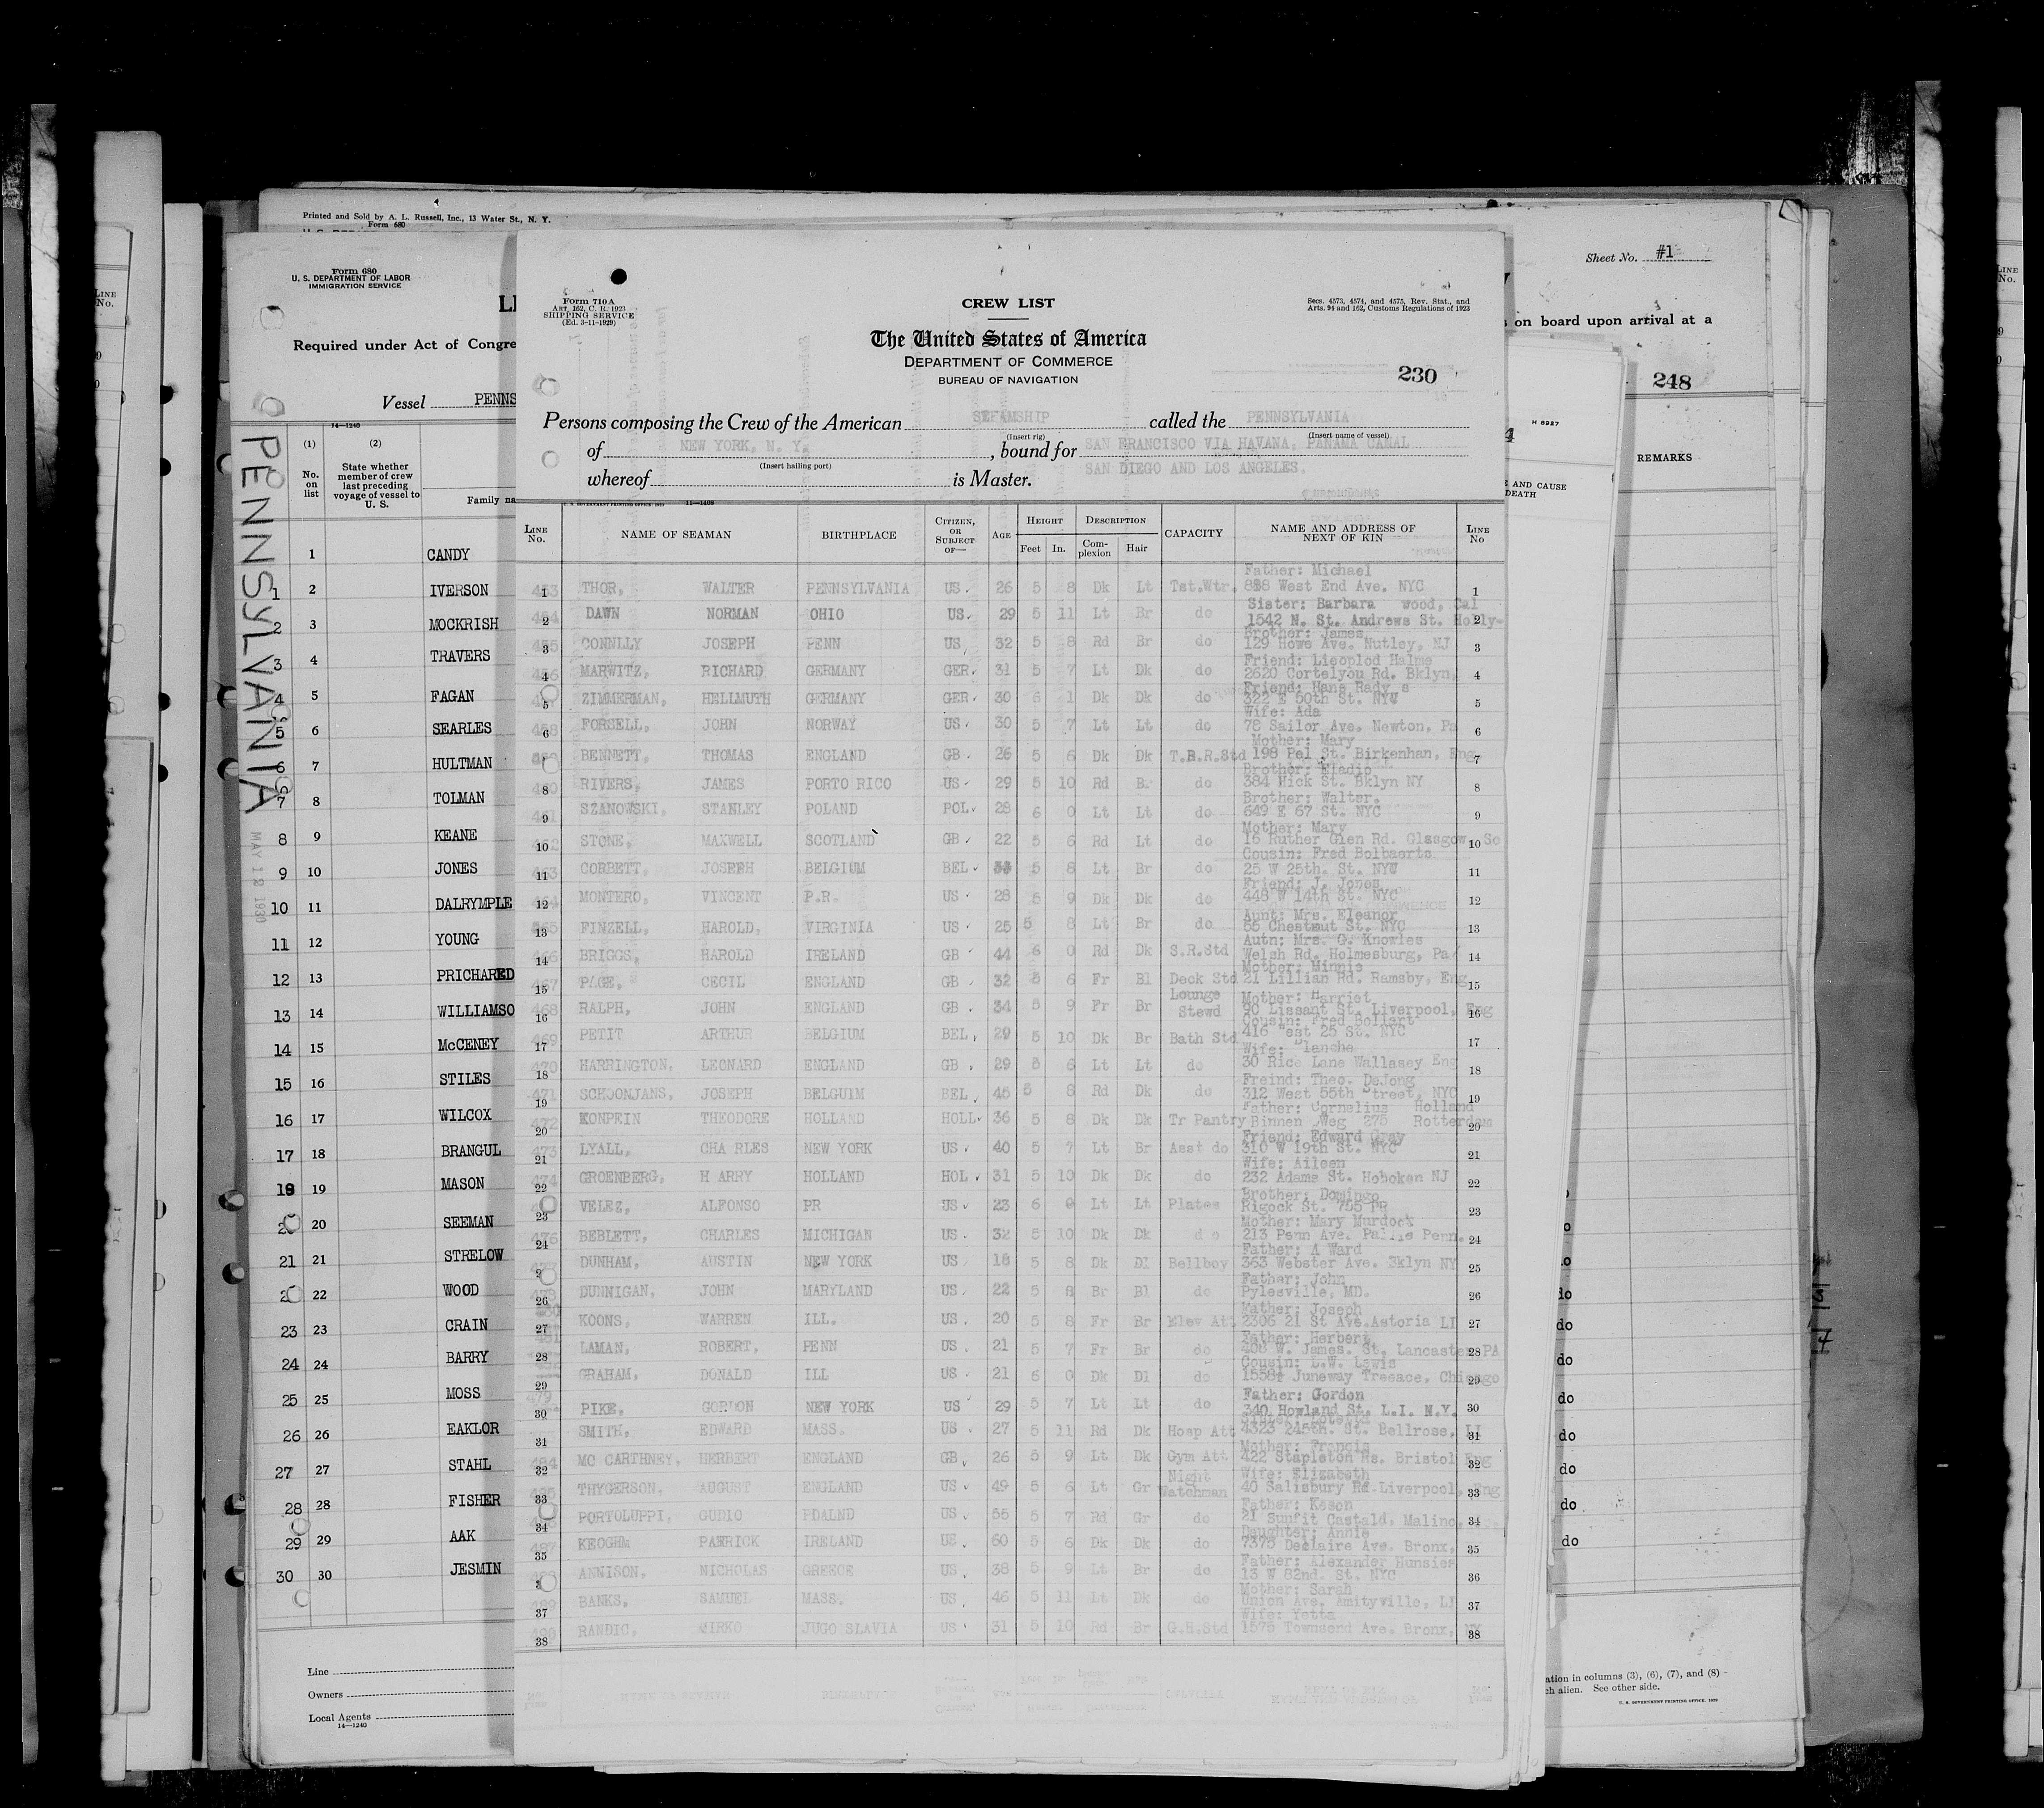 Printed and Sold by A. L. Russell, Inc., 13 Water St., N. Y.
Form 680
Sheet No. #1
Form 680
U. S. DEPARTMENT OF LABOR
IMMIGRATION SERVICE
Required under Act of Congre
on board upon arrival at a
248
Vessel PENNS
14—1240
(1) (2)
No. on list
State whether member of crew last preceding voyage of vessel to U. S.
Family na
PENNSYLVANIA
MAY 12 1930
1 CANDY
1 2 IVERSON
2 3 MOCKRISH
3 4 TRAVERS
4 5 FAGAN
5 6 SEARLES
6 7 HULTMAN
7 8 TOLMAN
8 9 KEANE
9 10 JONES
10 11 DALRYMPLE
11 12 YOUNG
12 13 PRICHARED
13 14 WILLIAMSO
14 15 McCENEY
15 16 STILES
16 17 WILCOX
17 18 BRANGUL
18 19 MASON
20 SEEMAN
21 21 STRELOW
22 WOOD
23 23 CRAIN
24 24 BARRY
25 25 MOSS
26 26 EAKLOR
27 27 STAHL
28 28 FISHER
29 29 AAK
30 30 JESMIN
Line
Owners
Local Agents
14—1240
Form 710 A
ART. 162, C. R. 1923
SHIPPING SERVICE
(Ed. 3-11-1929)
CREW LIST
Secs. 4573, 4574, and 4575, Rev. Stat., and
Arts. 94 and 162, Customs Regulations of 1923
The United States of America
DEPARTMENT OF COMMERCE
BUREAU OF NAVIGATION
230
Persons composing the Crew of the American STEAMSHIP called the PENNSYLVANIA
(Insert rig) (Insert name of vessel)
of NEW YORK, N. Y. , bound for SAN FRANCISCO VIA HAVANA, PANAMA CANAL
(Insert hailing port)
SAN DIEGO AND LOS ANGELES.
whereof is Master.
11—1409
LINE No. NAME OF SEAMAN BIRTHPLACE CITIZEN, OR SUBJECT OF— AGE HEIGHT Feet In. DESCRIPTION Complexion Hair CAPACITY NAME AND ADDRESS OF NEXT OF KIN LINE No
Father: Michael
1 THOR, WALTER PENNSYLVANIA US. 26 5 8 Dk Lt Tst.Wtr. 888 West End Ave. NYC 1
Sister: Barbara wood, Cal
2 DAWN NORMAN OHIO US. 29 5 11 Lt Br do 1542 N. St. Andrews St. Holly- 2
Brother: James
3 CONNLLY JOSEPH PENN US 32 5 8 Rd Br do 129 Howe Ave. Nutley, NJ 3
Friend: Lieoplod Halme
4 MARWITZ, RICHARD GERMANY GER 31 5 7 Lt Dk do 2620 Cortelyou Rd. Bklyn, 4
Friend: Hans Rady s
5 ZIMMERMAN, HELLMUTH GERMANY GER 30 6 1 Dk Dk do 322 E 50th St. NYC 5
Wife: Ada
6 FORSELL, JOHN NORWAY US 30 5 7 Lt Lt do 78 Sailor Ave. Newton, Pa 6
Mother: Mary
BENNETT, THOMAS ENGLAND GB 26 5 6 Dk Dk T.B.R.Std 198 Pel St. Birkenhan, Eng 7
Brother: Eladio
8 RIVERS, JAMES PORTO RICO US 29 5 10 Rd B. do 384 Hick St. Bklyn NY 8
Brother: Walter.
9 SZANOWSKI, STANLEY POLAND POL 28 6 0 Lt Lt do 649 E 67 St. NYC 9
Mother: Mary
10 STONE, MAXWELL SCOTLAND GB 22 5 6 Rd Lt do 16 Ruther Glen Rd. Glasgow Sc 10
Cousin: Fred Bolbaerts
11 CORBETT, JOSEPH BELGIUM BEL 5 8 Lt Br do 25 W 25th. St. NYC 11
Friend: J. Jones
12 MONTERO, VINCENT P.R. US 28 5 9 Dk Dk do 448 W 14th St. NYC 12
Aunt: Mrs. Eleanor
13 FINZELL, HAROLD, VIRGINIA US 25 5 8 Lt Br do 55 Chestnut St. NYC 13
Autn: Mrs. G. Knowles
14 BRIGGS, HAROLD IRELAND GB 44 6 0 Rd Dk S.R.Std Welsh Rd. Holmesburg, Pa 14
Mother: Minnie
15 PAGE, CECIL ENGLAND GB 32 5 6 Fr Bl Deck Std 21 Lillian Rd. Ramsby, Eng 15
Mother: Harriet
16 RALPH, JOHN ENGLAND GB 34 5 9 Fr Br Lounge Stewd 90 Lissant St. Liverpool, Eng 16
Cousin: Fred Bollart
17 PETIT ARTHUR BELGIUM BEL 29 5 10 Dk Br Bath Std 416 West 25 St. NYC 17
Wife: Blanche
18 HARRINGTON, LEONARD ENGLAND GB 29 5 6 Lt Lt do 30 Rice Lane Wallasey Eng 18
Freind: Theo. DeJong
19 SCHOONJANS, JOSEPH BELGUIM BEL 45 5 8 Rd Dk do 312 West 55th Street, NYC 19
Father: Cornelius Holland
20 KONPEIN THEODORE HOLLAND HOLL 36 5 8 Dk Dk Tr Pantry Binnen Weg 275 Rotterdam 20
Friend: Edward Gray
21 LYALL, CHA RLES NEW YORK US 40 5 7 Lt Br Asst do 310 W 19th St. NYC 21
Wife: Aileen
22 GROENBERG, H ARRY HOLLAND HOL 31 5 10 Dk Dk do 232 Adams St. Hoboken NJ 22
Brother: Domingo
23 VELEZ, ALFONSO PR US 23 6 0 Lt Lt Plates Rigock St. 755 PR 23
Mother: Mary Murdock
24 BEBLETT, CHARLES MICHIGAN US 32 5 10 Dk Dk do 213 Penn Ave. Penn. 24
Father: A Ward
DUNHAM, AUSTIN NEW YORK US 18 5 8 Dk Bl Bellboy 363 Webster Ave. Bklyn NY 25
Father: John
26 DUNNIGAN, JOHN MARYLAND US 22 5 8 Br Bl do Pylesville, MD. 26
Father: Joseph
27 KOONS, WARREN ILL. US 20 5 8 Fr Br Elev Att 2306 21 St Ave. Astoria LI 27
Father: Herbert
28 LAMAN, ROBERT, PENN US 21 5 7 Fr Br do 408 W. James. St. Lancaster PA 28
Cousin: L.W. Lewis
29 GRAHAM, DONALD ILL US 21 6 0 Dk Bl do 1558½ Juneway Tresace, Chicago 29
Father: Gordon
30 PIKE, GORDON NEW YORK US 29 5 7 Lt Lt do 340 Howland St. L.I. N.Y. 30
31 SMITH, EDWARD MASS. US 27 5 11 Rd Dk Hosp Att 4323 245th. St. Bellrose, LI 31
Mother: Francis
32 MC CARTHNEY, HERBERT ENGLAND GB 26 5 9 Lt Dk Gym Att 422 Stapleton Rs. Bristol Eng 32
Wife: Elizabeth
33 THYGERSON, AUGUST ENGLAND US 49 5 6 Lt Gr Night Watchman 40 Salisbury Rd. Liverpool, Eng 33
Father: Keson
34 PORTOLUPPI, GUDIO POALND US 55 5 7 Rd Gr do 21 Sunfit Castald, Malino, 34
Daughter: Annie
35 KEOGHM PAERICK IRELAND US 60 5 6 Dk Dk do 7375 Declaire Ave. Bronx, 35
Father: Alexander Hunsies
ANNISON, NICHOLAS GREECE US 38 5 9 Lt Br do 13 W 82nd. St. NYC 36
Mother: Sarah
37 BANKS, SAMUEL MASS. US 46 5 11 Lt Dk do Union Ave. Amityville, LI 37
Wife: Yetta
38 RANDIC, MIRKO JUGO SLAVIA US 31 5 10 Rd Br G.H.Std 1575 Townsend Ave. Bronx, 38
H 8227
REMARKS
AND CAUSE
DEATH
do
do
do
do
do
do
do
ation in columns (3), (6), (7), and (8)
ch alien. See other side.
U. S. GOVERNMENT PRINTING OFFICE. 1929